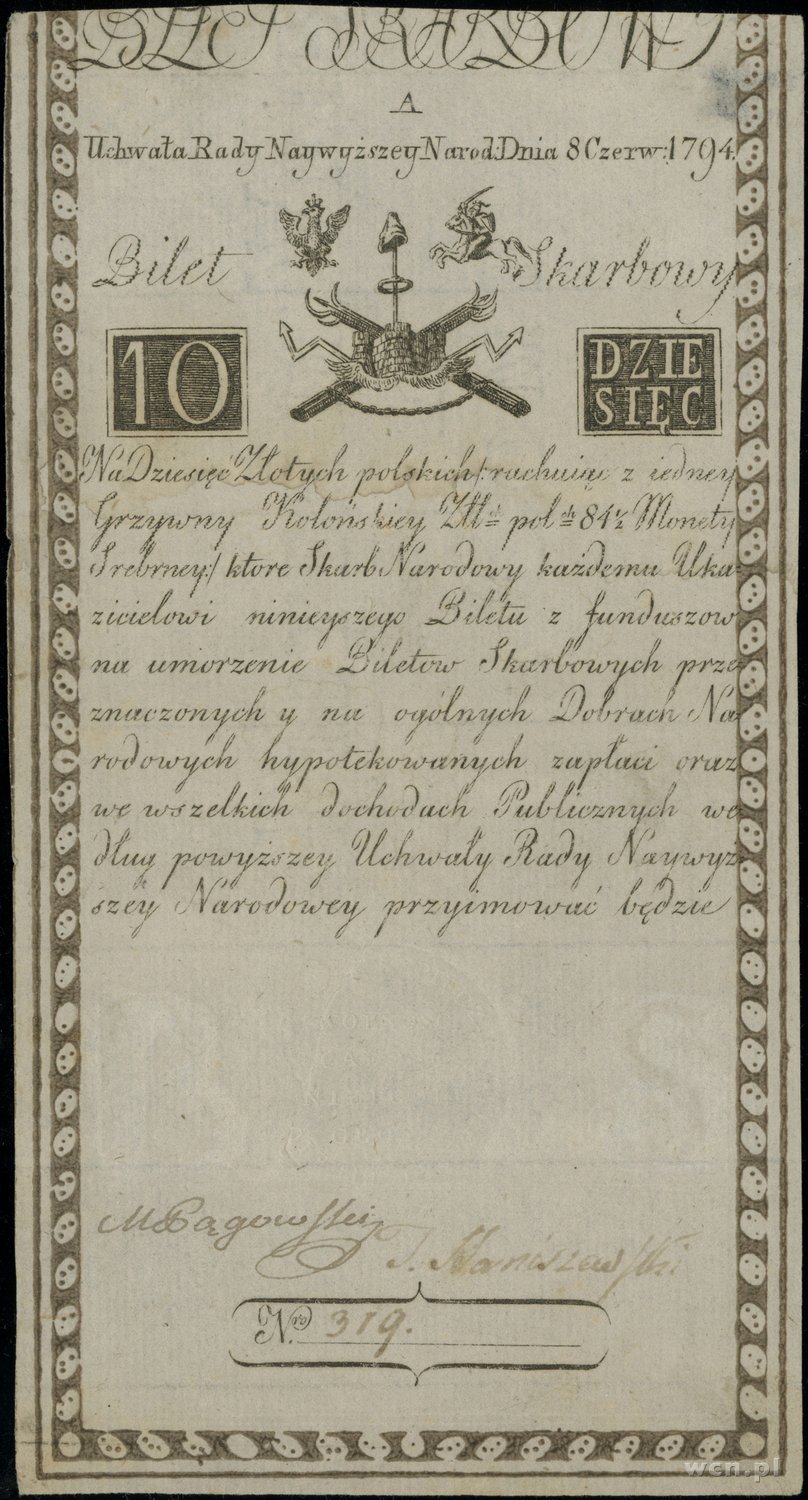 BILET SKARBOWY
A
Uchwała Rady Naywyższey Narod: Dnia 8 Czerw: 1794.
Bilet Skarbowy
10 DZIE
SIĘC
Na Dziesięć Złotych polskich /: rachuiąc z iedney
Grzywny Kolońskiey Złł. pol. 84½ Monety
Srebrney :/ ktore Skarb Narodowy każdemu Uka-
zicielowi ninieyszego Biletu z funduszow
na umorzenie Biletow Skarbowych prze-
znaczonych y na ogólnych Dobrach Na-
rodowych hypotekowanych zapłaci oraz
we wszelkich dochodach Publicznych we-
dług powyższey Uchwały Rady Naywyż-
szey Narodowey przyimować będzie
M Pągowski
J. Staniszewski
Nro 319.
wcn.pl